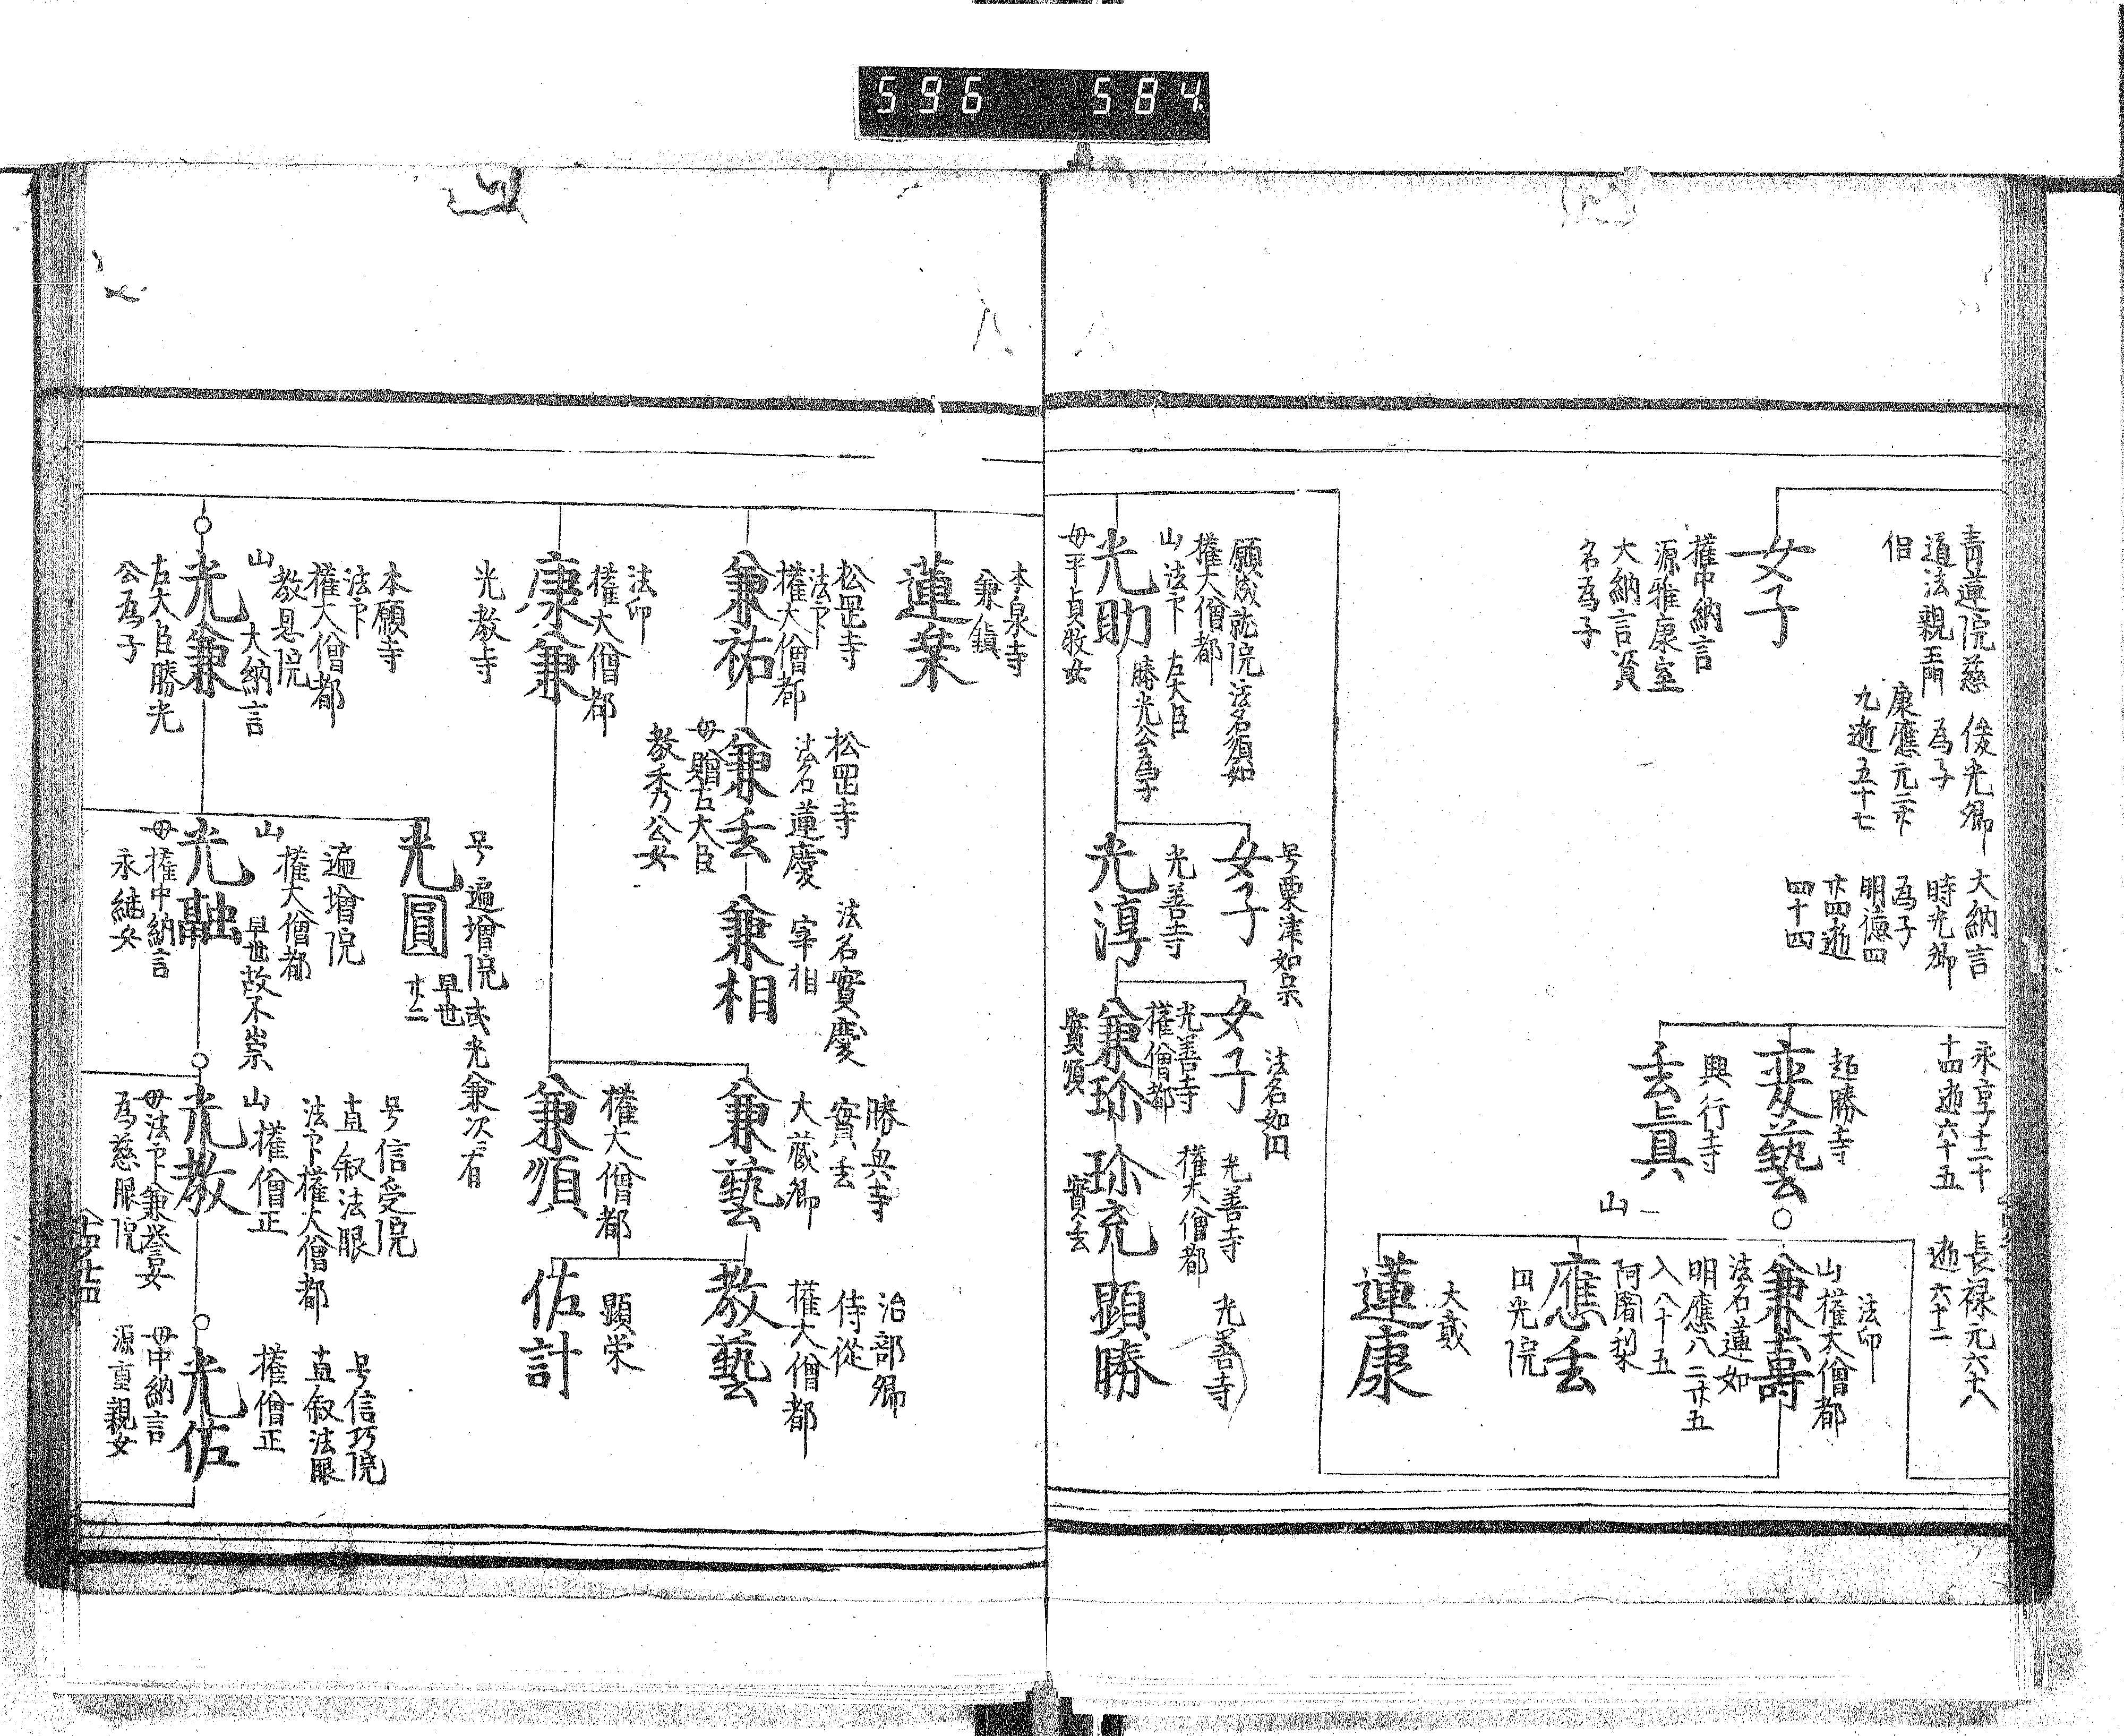 596 584
青蓮院慈
道法親王門
侶
俊光卿
為子
康應元
九逝五十七
大納言
時光卿
為子
明徳四
四逝
四十四
永享十二十
十四逝六十五
長禄元六十八
逝六十二
女子
權中納言
源雅康室
大納言資
名為子
超勝寺
興行寺
山
法印
山權大僧都
兼壽
法名蓮如
明應八二廿五
入八十五
阿闍梨
應玄
円光院
大蔵
蓮康
願成就院法名順如
權大僧都
山法下
左大臣
勝光公為子
光助
母平貞牧女
号粟津如宗
女子
光善寺
光淳
法名如円
女子
光善寺
權僧都
兼珍
實順
光善寺
權大僧都
珍充
實玄
光善寺
顕勝
本泉寺
兼鎮
蓮業
松岡寺
法下
權大僧都
兼祐
松岡寺
法名蓮慶
兼玄
母贈左大臣
教秀公女
法名實慶
宰相
兼相
法印
權大僧都
康兼
光教寺
勝興寺
實玄
大蔵卿
兼藝
權大僧都
兼順
治部卿
侍從
權大僧都
教藝
顕栄
佐計
本願寺
法下
權大僧都
教恩院
山
大納言
光兼
左大臣勝光
公為子
号遍増院或光兼次ニ有
光圓
早世
廿二
遍増院
權大僧都
山
早世故不崇
光融
母權中納言
永継女
号信受院
直叙法眼
法下權大僧都
山權僧正
光教
母法下兼誉女
為慈眼院
号信巧院
直叙法眼
權僧正
光佐
母中納言
源重親女